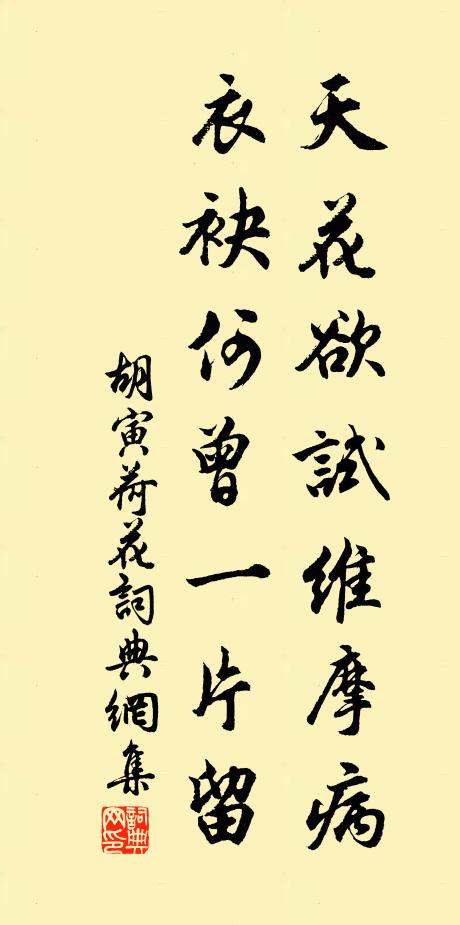 天花欲試維摩病
衣袂何曾一片留
胡寅荷花詞典網集
詞典网印